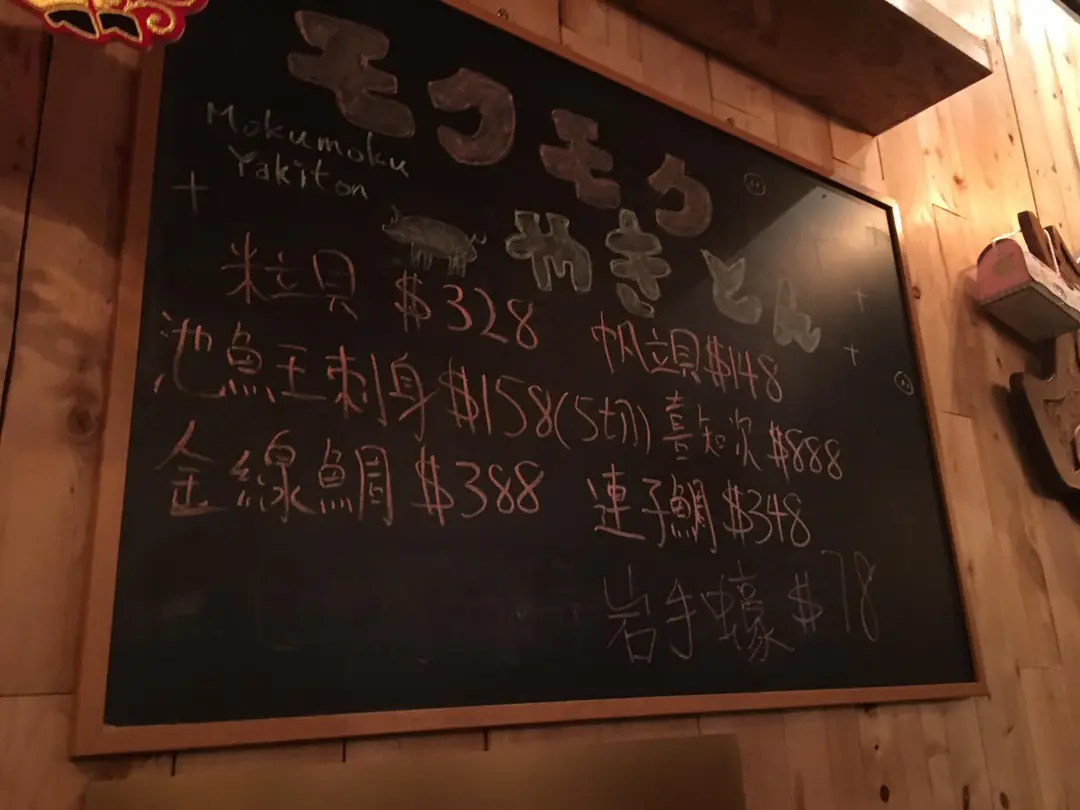 モクモク
Mokumoku
Yakiton
焼きとん
粒貝 $328
帆立貝 $148
池魚王刺身 $158(5切)
喜知次 $888
金線鯛 $388
連子鯛 $348
岩手蠔 $78